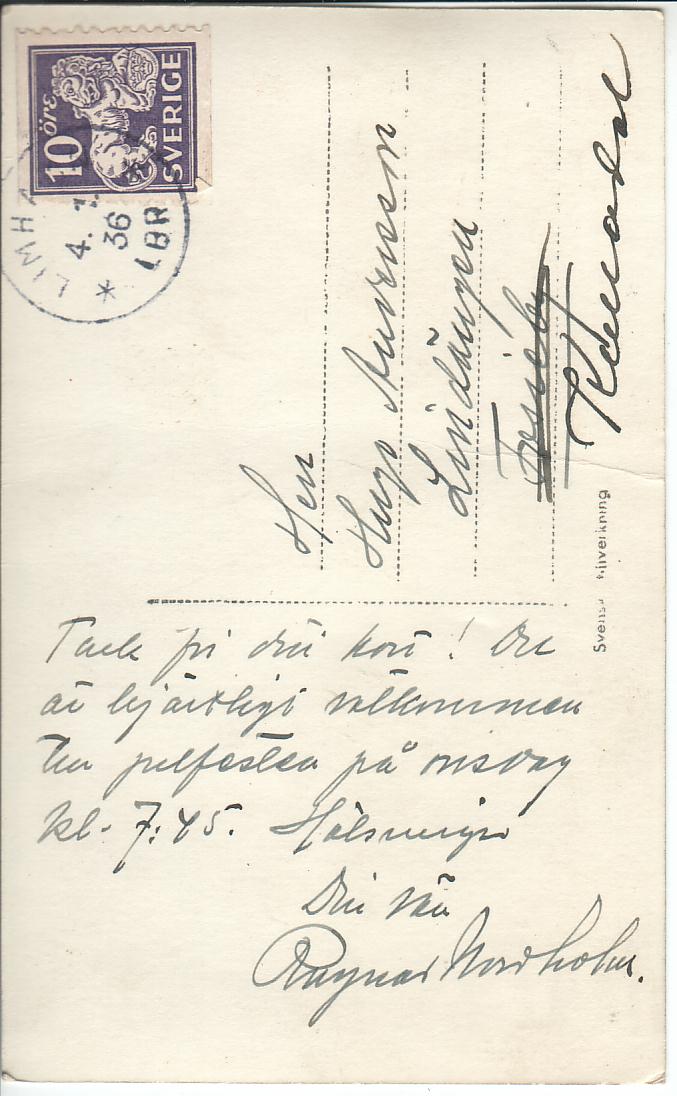 10 öre
SVERIGE
LIMHA
4. 1
36
LBR
Herr
Hugo Andersson
Lindängen
Fosieby
Svensk tillverkning
Tack för ditt kort! Du
är hjärtligt välkommen
till julfesten på onsdag
kl. 7:45. Hälsningar
Din vän
Ragnar Nordholm.